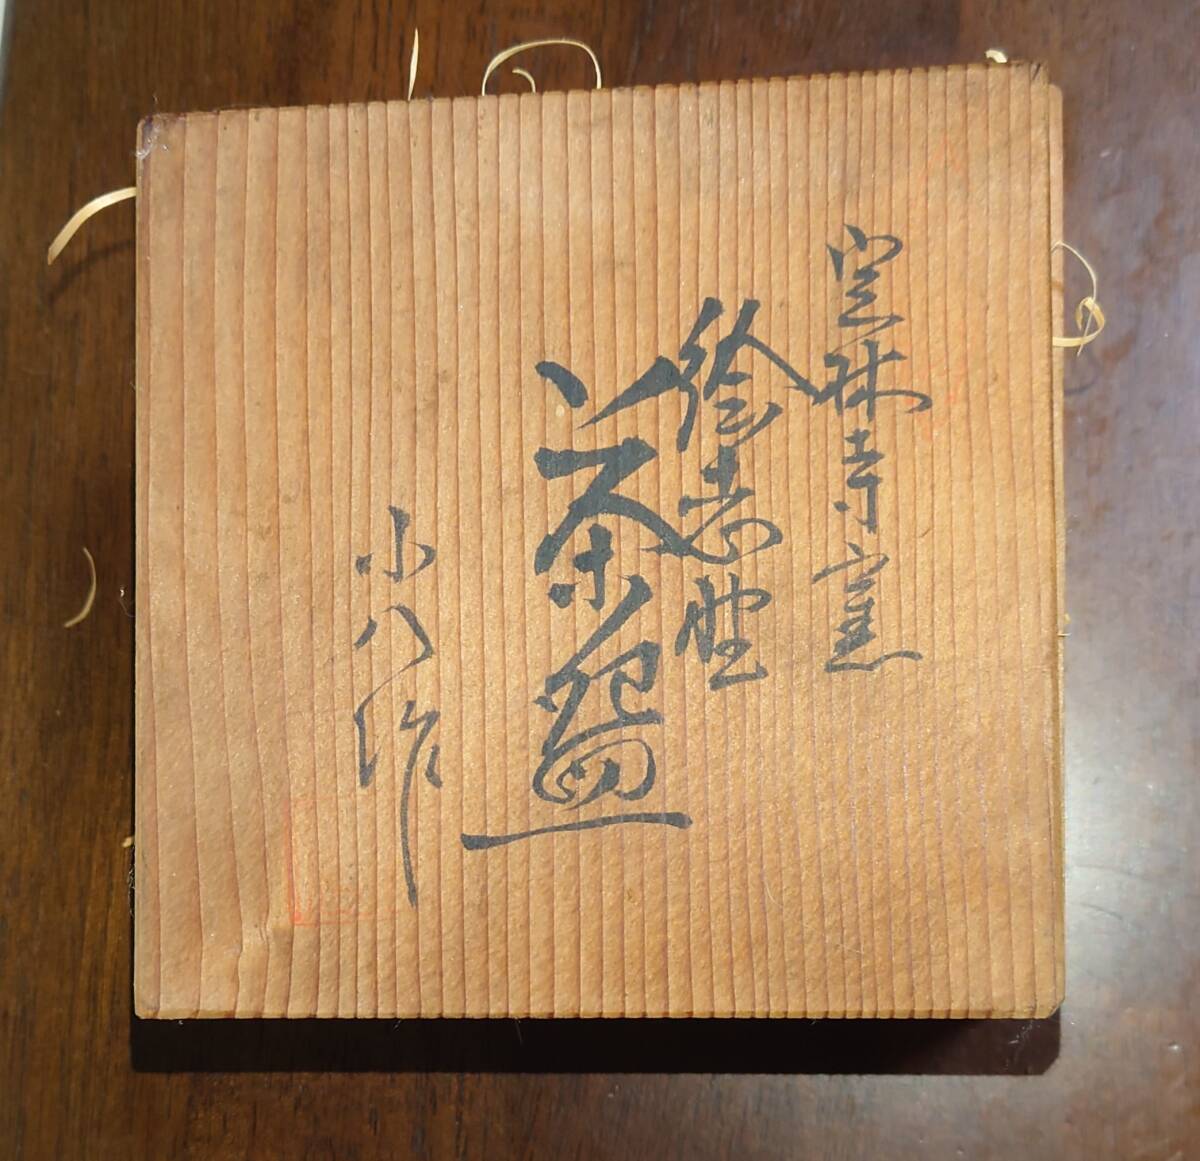 定林寺窯
絵志野
茶盌
小八作